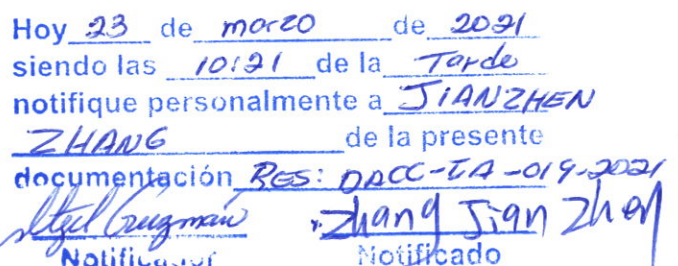 Hoy 23 de marzo de 2021
siendo las 10:21 de la Tarde
notifique personalmente a JIANZHEN
ZHANG de la presente
documentación RES: DACC-IA-019-2021
Itzel Guzmán Zhang Jian Zhen
Notificador Notificado